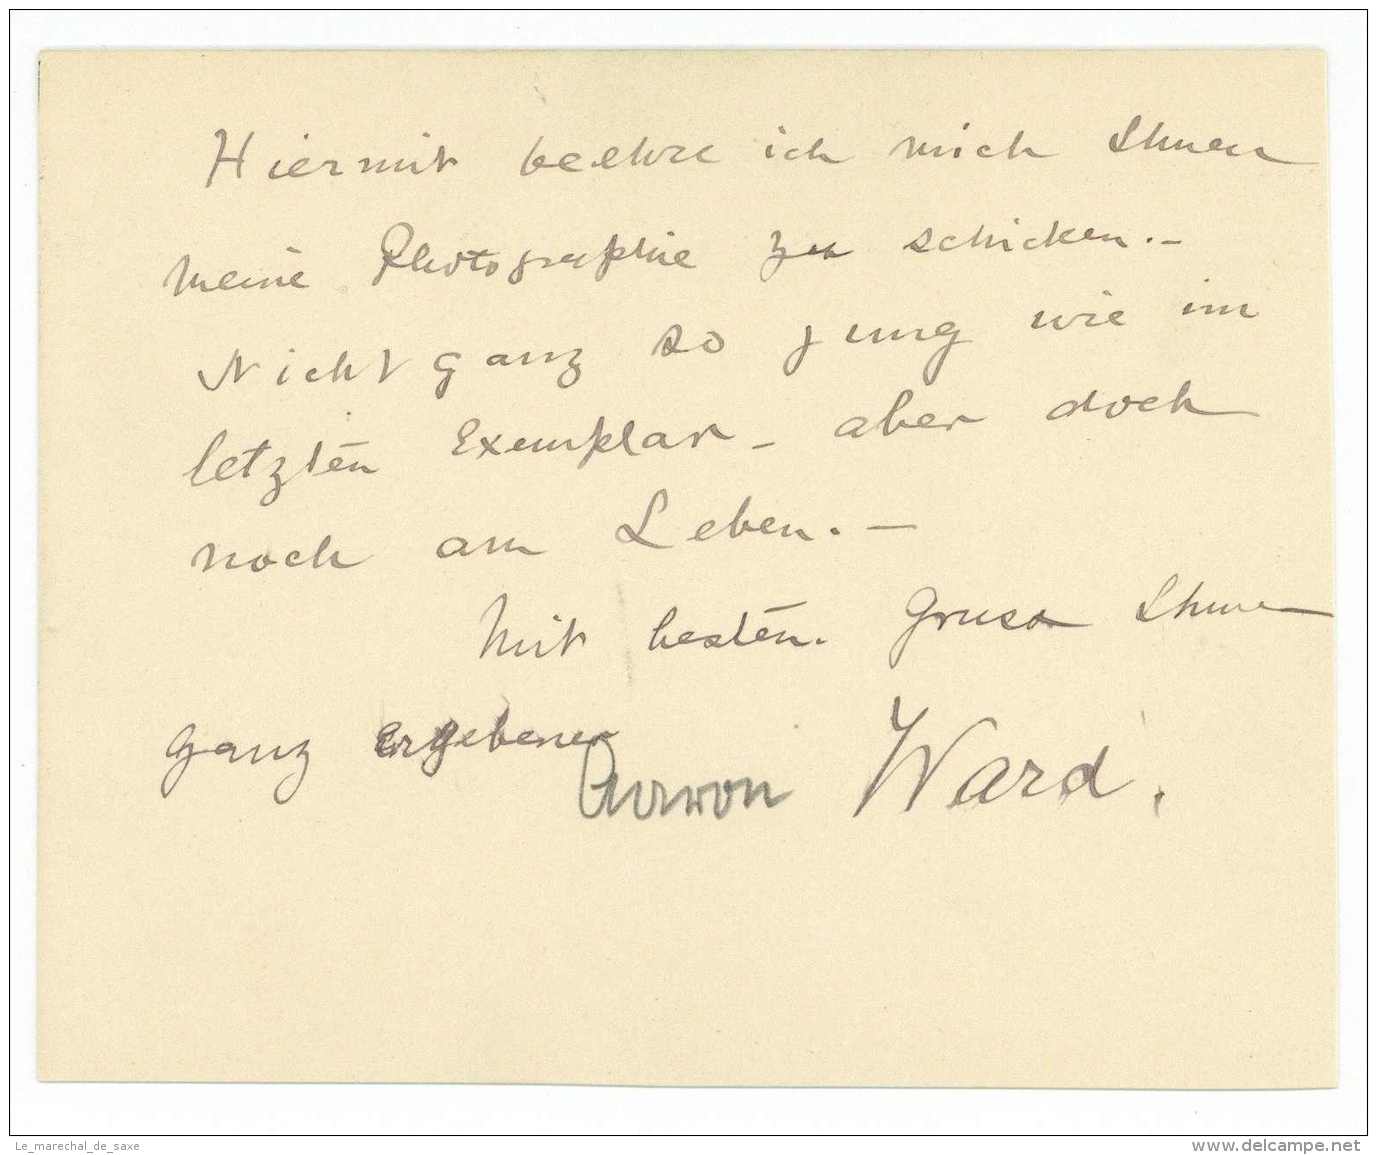 Hiermit beehre ich mich Ihnen
meine Photographie zu schicken.-
Nicht ganz so jung wie im
letzten Exemplar - aber doch
noch am Leben. -
Mit besten Gruss Ihnen
ganz ergebener
Aaron Ward.
Le_marechal_de_saxe
www.delcampe.net